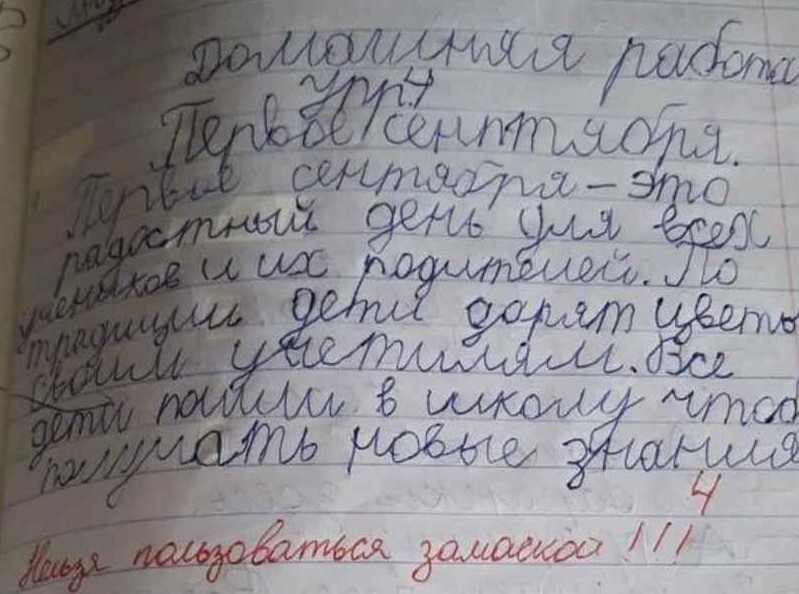 Домашняя работа
Упр 4
Первое сенптября.
Первое сентября – это
радостный день для всех
учеников и их родителей. По
традиции дети дарят цветы
своим учетилям. Все
дети пошли в школу чтоб
получать новые знания
4
Нельзя пользоваться замаской !!!